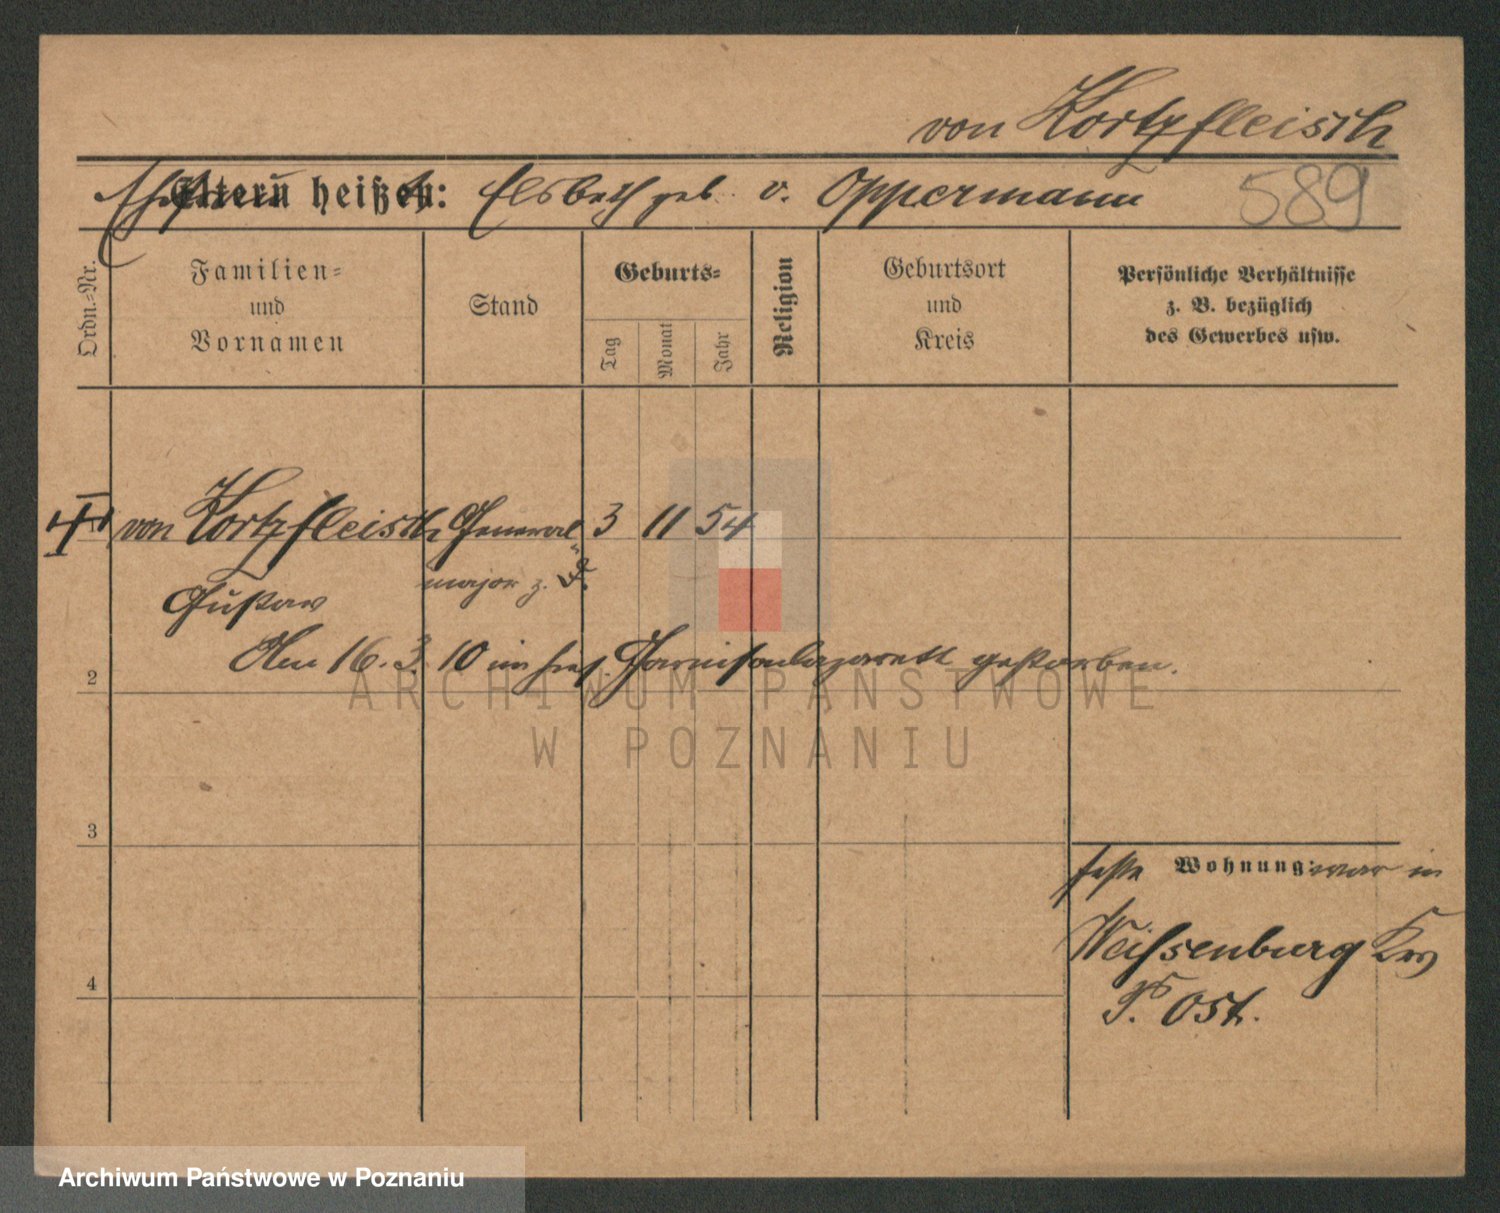 von Kortzfleisch
Ehefrau heißt: Elsbeth geb. v. Oppermann 589
Ordn.-Nr.
Familien-
und
Vornamen
Stand
Geburts-
Tag
Monat
Jahr
Religion
Geburtsort
und
Kreis
Persönliche Verhältnisse
z. B. bezüglich
des Gewerbes usw.
1 von Kortzfleisch General 3 11 54
major z. D.
Gustav
Am 16. 3. 10 im hies. Garnisonlazarett gestorben.
2
ARCHIWUM PAŃSTWOWE
W POZNANIU
3
feste Wohnung: war in
Weissenburg Krs
P. Ost.
4
Archiwum Państwowe w Poznaniu